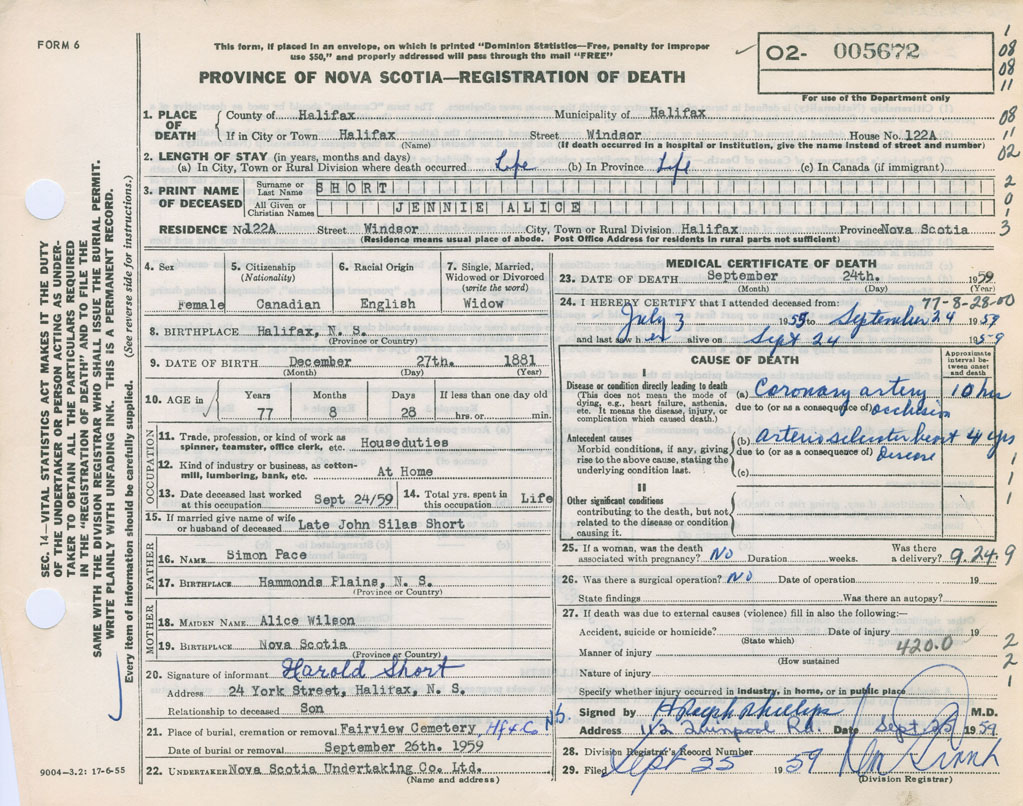 FORM 6
This form, if placed in an envelope, on which is printed "Dominion Statistics—Free, penalty for improper
use $50," and properly addressed will pass through the mail "FREE"
PROVINCE OF NOVA SCOTIA—REGISTRATION OF DEATH
02- 005672
For use of the Department only
1
08
08
11
08
11
02
2
0
1
3
SEC. 14—VITAL STATISTICS ACT MAKES IT THE DUTY
OF THE UNDERTAKER OR PERSON ACTING AS UNDER-
TAKER TO OBTAIN ALL THE PARTICULARS REQUIRED
IN THE "REGISTRATION OF DEATH" AND TO FILE THE
SAME WITH THE DIVISION REGISTRAR WHO SHALL ISSUE THE BURIAL PERMIT.
WRITE PLAINLY WITH UNFADING INK. THIS IS A PERMANENT RECORD.
Every item of information should be carefully supplied. (See reverse side for instructions.)
1. PLACE OF DEATH County of Halifax Municipality of Halifax
If in City or Town Halifax Street Windsor House No. 122A
(Name) (If death occurred in a hospital or institution, give the name instead of street and number)
2. LENGTH OF STAY (in years, months and days)
(a) In City, Town or Rural Division where death occurred Life (b) In Province Life (c) In Canada (if immigrant)
3. PRINT NAME OF DECEASED
Surname or Last Name SHORT
All Given or Christian Names JENNIE ALICE
RESIDENCE No 122A Street Windsor City, Town or Rural Division Halifax Province Nova Scotia
(Residence means usual place of abode. Post Office Address for residents in rural parts not sufficient)
4. Sex
Female
5. Citizenship
(Nationality)
Canadian
6. Racial Origin
English
7. Single, Married,
Widowed or Divorced
(write the word)
Widow
8. BIRTHPLACE Halifax, N. S.
(Province or Country)
9. DATE OF BIRTH December 27th. 1881
(Month) (Day) (Year)
10. AGE in Years Months Days If less than one day old
77 8 28 hrs. or min.
OCCUPATION
11. Trade, profession, or kind of work as
spinner, teamster, office clerk, etc. Houseduties
12. Kind of industry or business, as cotton-
mill, lumbering, bank, etc. At Home
13. Date deceased last worked
at this occupation Sept 24/59
14. Total yrs. spent in
this occupation Life
15. If married give name of wife
or husband of deceased Late John Silas Short
FATHER
16. NAME Simon Pace
17. BIRTHPLACE Hammonds Plains, N. S.
(Province or Country)
MOTHER
18. MAIDEN NAME Alice Wilson
19. BIRTHPLACE Nova Scotia
(Province or Country)
20. Signature of informant Harold Short
Address 24 York Street, Halifax, N. S.
Relationship to deceased Son
21. Place of burial, cremation or removal Fairview Cemetery Hfx Co NS.
Date of burial or removal September 26th. 1959
22. UNDERTAKER Nova Scotia Undertaking Co. Ltd.
(Name and address)
9004—3.2: 17-6-55
MEDICAL CERTIFICATE OF DEATH
23. DATE OF DEATH September 24th. 1959
(Month) (Day) (Year)
77-8-28-00
24. I HEREBY CERTIFY that I attended deceased from:
July 3 1955 to September 24 1959
and last saw her alive on Sept 24 1959
CAUSE OF DEATH
Approximate
interval be-
tween onset
and death
I
Disease or condition directly leading to death
(This does not mean the mode of
dying, e.g., heart failure, asthenia,
etc. It means the disease, injury, or
complication which caused death.)
(a) Coronary artery 10 hrs
due to (or as a consequence of) occlusion
Antecedent causes
Morbid conditions, if any, giving
rise to the above cause, stating the
underlying condition last.
(b) Arteriosclerotic heart 4 yrs
due to (or as a consequence of) Disease
(c)
II
Other significant conditions
contributing to the death, but not
related to the disease or condition
causing it.
1
1
1
25. If a woman, was the death
associated with pregnancy? No Duration weeks. Was there
a delivery? 9.24.9
26. Was there a surgical operation? No Date of operation 19
State findings Was there an autopsy?
27. If death was due to external causes (violence) fill in also the following:—
Accident, suicide or homicide? Date of injury 19
(State which)
Manner of injury 420.0
(How sustained)
Nature of injury
Specify whether injury occurred in industry, in home, or in public place
2
2
1
Signed by H Ralph Phillips M.D.
Address 112 Quinpool Rd. Date Sept 25 1959
28. Division Registrar's Record Number
29. Filed Sept 25 1959
(Division Registrar)